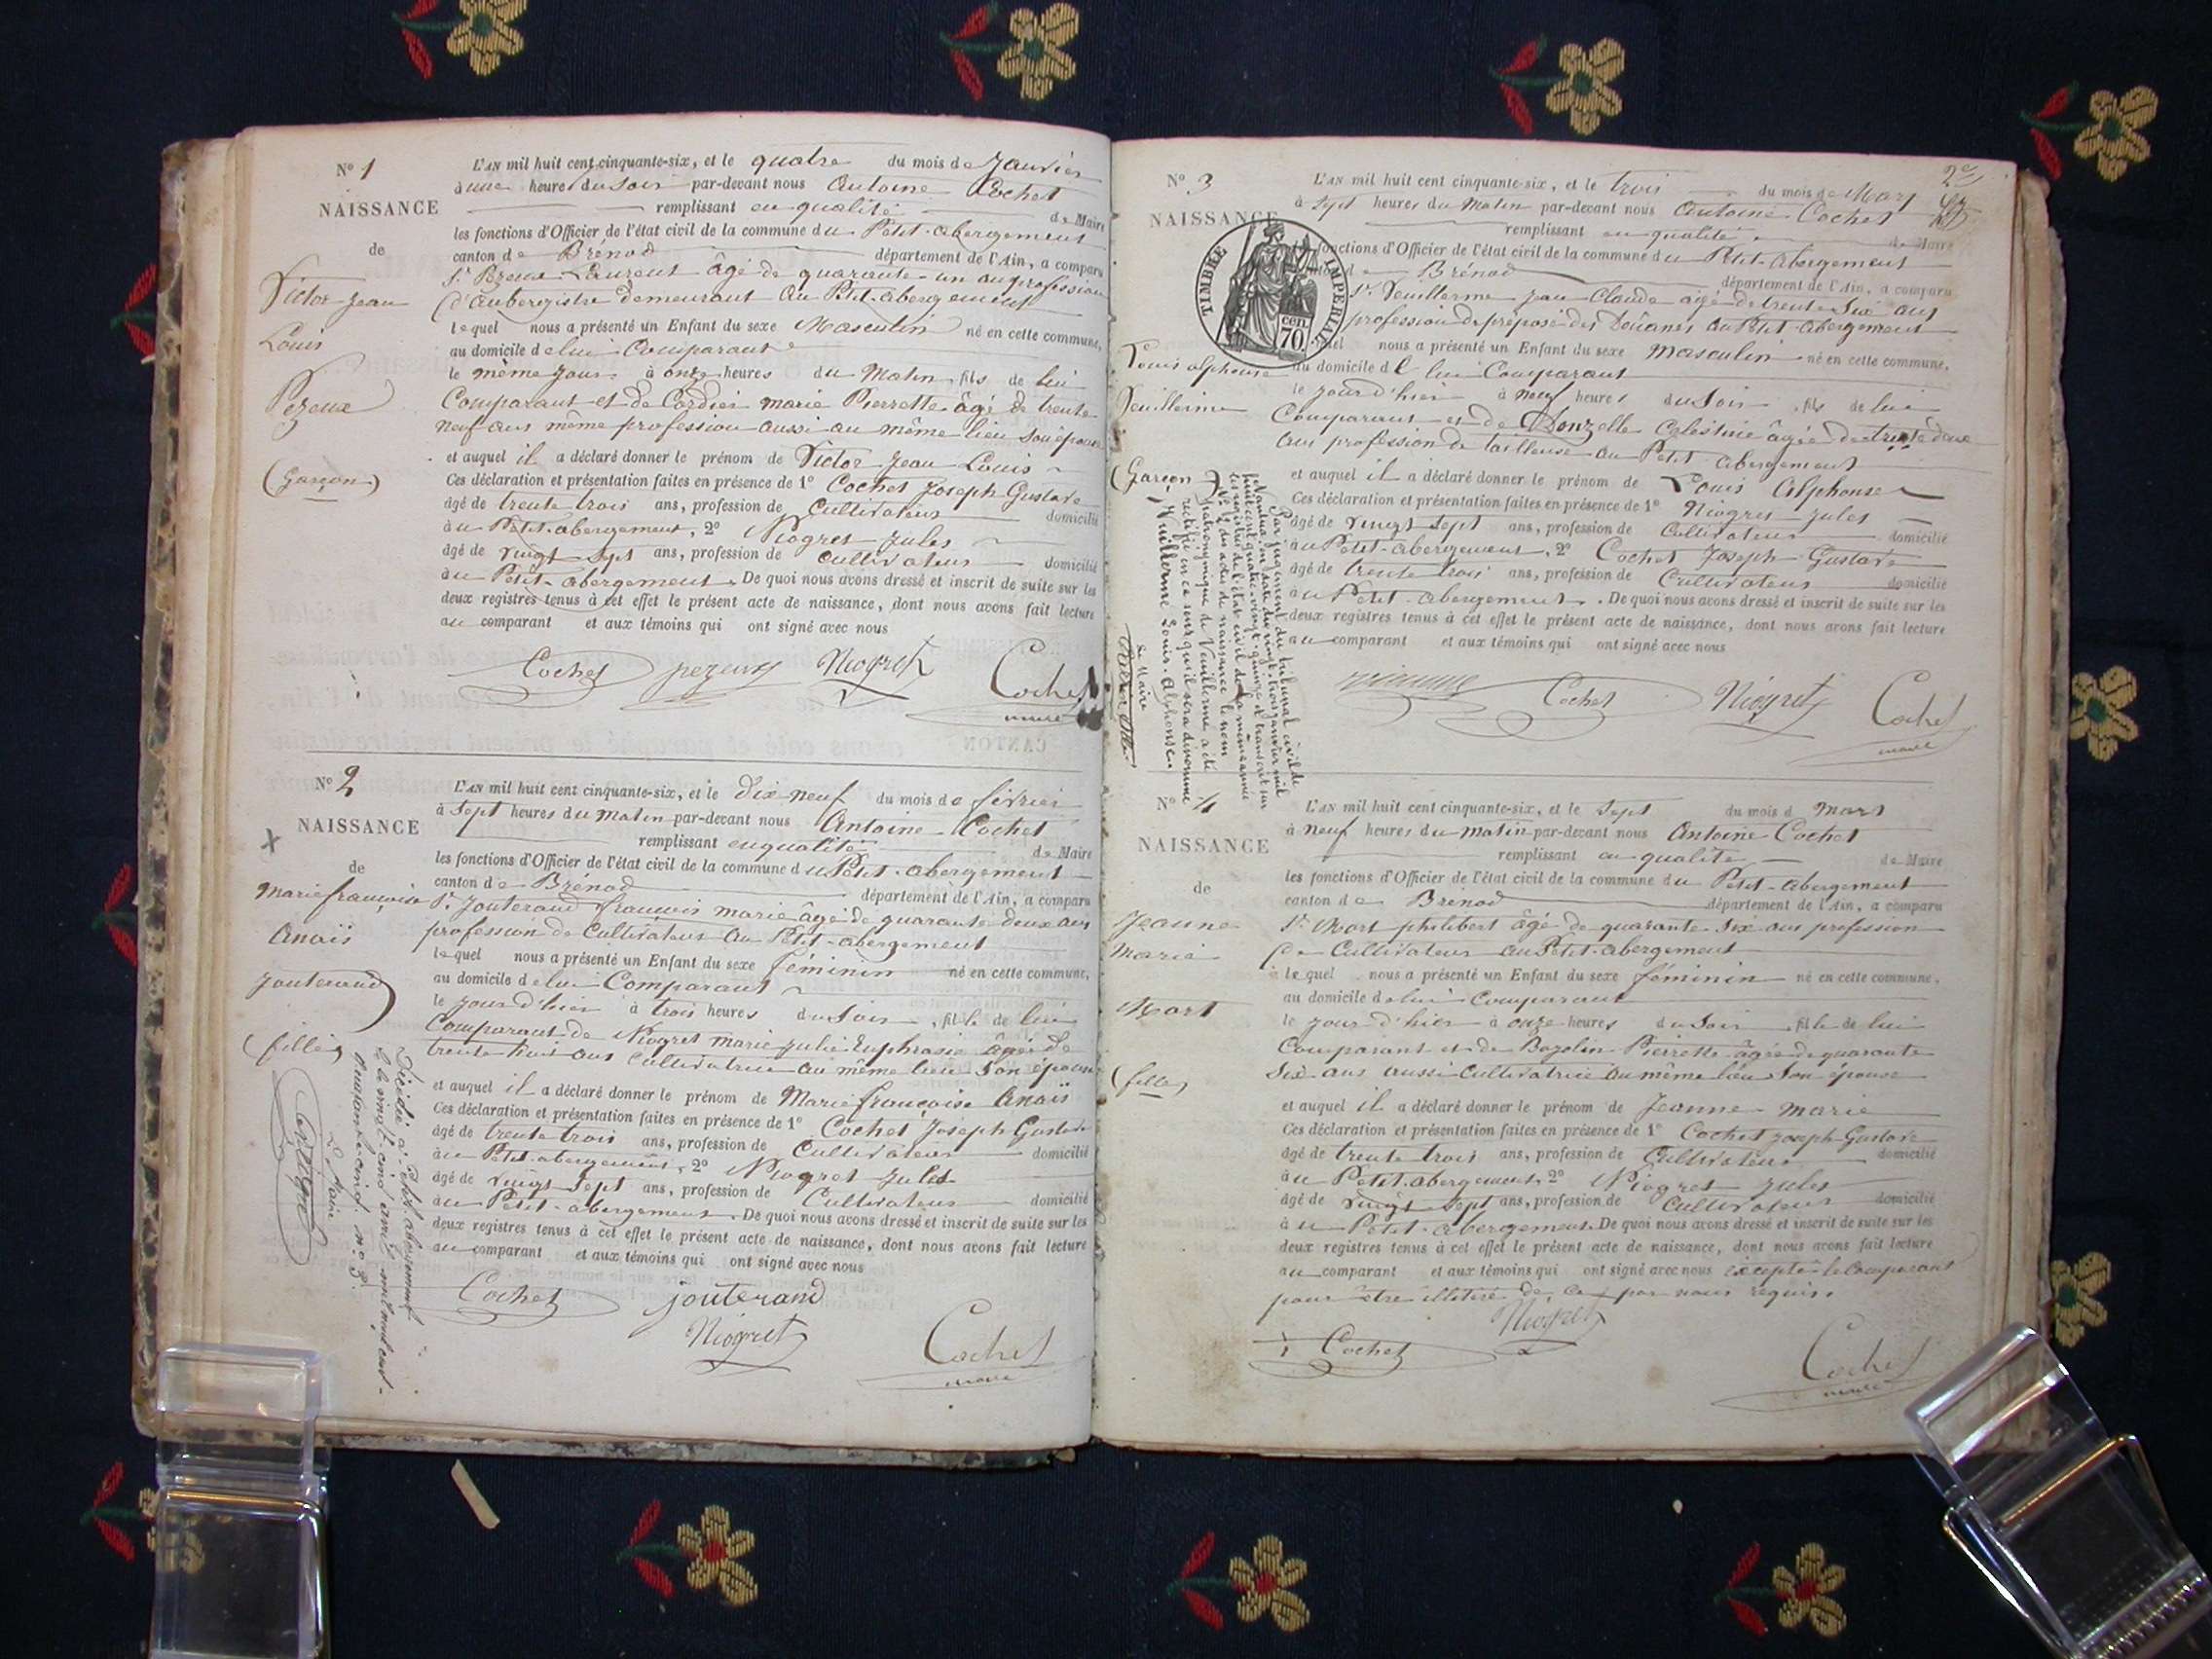 N° 1
NAISSANCE
de
Victor Jean
Louis
Pezeux
(Garçon)
L'AN mil huit cent cinquante-six, et le quatre du mois de Janvier
à une heure du soir par-devant nous Antoine Cochet
remplissant en qualité de Maire
les fonctions d'Officier de l'état civil de la commune du Petit-abergement
canton de Brénod département de l'Ain, a comparu
Sr. Pezeux Laurent âgé de quarante-un ans profession
d'Aubergiste demeurant au Petit-abergement
lequel nous a présenté un Enfant du sexe Masculin né en cette commune,
au domicile de lui Comparant
le même jour à onze heures du Matin, fils de lui
Comparant et de Cordier marie Pierrette âgé de trente
neuf ans même profession aussi au même lieu son épouse
et auquel il a déclaré donner le prénom de Victor Jean Louis
Ces déclaration et présentation faites en présence de 1° Cochet Joseph Gustave
âgé de trente trois ans, profession de Cultivateur domicilié
au Petit-abergement, 2° Niogret Jules
âgé de vingt sept ans, profession de cultivateur domicilié
au Petit-abergement. De quoi nous avons dressé et inscrit de suite sur les
deux registres tenus à cet effet le présent acte de naissance, dont nous avons fait lecture
au comparant et aux témoins qui ont signé avec nous
Cochet pezeux Niogret Cochet
maire
N° 2
NAISSANCE
de
Marie françoise
Anaïs
Jouterand
(fille)
L'AN mil huit cent cinquante-six, et le dix-neuf du mois de février
à sept heures du matin par-devant nous Antoine Cochet
remplissant en qualité de Maire
les fonctions d'Officier de l'état civil de la commune du Petit-abergement
canton de Brénod département de l'Ain, a comparu
Sr. Jouterand françois marie âgé de quarante deux ans
profession de Cultivateur au Petit-abergement
lequel nous a présenté un Enfant du sexe féminin né en cette commune,
au domicile de lui Comparant
le jour d'hier à trois heures du soir, fille de lui
Comparant de Niogret marie julie Euphrasie âgée de
trente huit ans Cultivatrice au même lieu son épouse
et auquel il a déclaré donner le prénom de Marie françoise Anaïs
Ces déclaration et présentation faites en présence de 1° Cochet Joseph Gustave
âgé de trente trois ans, profession de Cultivateur domicilié
au Petit-abergement, 2° Niogret Jules
âgé de vingt sept ans, profession de Cultivateur domicilié
au Petit-abergement. De quoi nous avons dressé et inscrit de suite sur les
deux registres tenus à cet effet le présent acte de naissance, dont nous avons fait lecture
au comparant et aux témoins qui ont signé avec nous
Cochet jouterand
Niogret Cochet
maire
Décédée à Petit abergement
le vingt-cinq avril mil neuf cent
quarante-cinq. n° 3.
Le Maire
2e
N° 3
NAISSANCE
TIMBRE IMPERIAL
70 cen
Louis alphonse
Veuillerme
(Garçon)
L'AN mil huit cent cinquante-six, et le trois du mois de Mars
à sept heures du Matin par-devant nous Antoine Cochet
remplissant en qualité de Maire
fonctions d'Officier de l'état civil de la commune du Petit-abergement
Brénod département de l'Ain, a comparu
Sr. Veuillerme Jean Claude âgé de trente six ans
profession de préposé des Douanes au Petit-abergement
lequel nous a présenté un Enfant du sexe masculin né en cette commune,
au domicile de lui Comparant
le jour d'hier à neuf heures du soir, fils de lui
Comparant et de Donzelle Celestine âgée de trente deux
ans profession de tailleuse au Petit-abergement
et auquel il a déclaré donner le prénom de Louis Alphonse
Ces déclaration et présentation faites en présence de 1° Niogret Jules
âgé de vingt sept ans, profession de Cultivateur domicilié
au Petit-abergement, 2° Cochet Joseph Gustave
âgé de trente trois ans, profession de Cultivateur domicilié
au Petit-abergement. De quoi nous avons dressé et inscrit de suite sur les
deux registres tenus à cet effet le présent acte de naissance, dont nous avons fait lecture
au comparant et aux témoins qui ont signé avec nous
Cochet Niogret Cochet
maire
Par jugement du tribunal civil de
Nantua, en date du vingt-trois janvier mil
huit cent quatre-vingt-quinze et transcrit sur
les registres de l'état civil de la même année
N° 2 du acte de naissance le nom
patronymique de Veuillerme a été
rectifié en ce sens qu'il sera dénommé
Vuillerme Louis-Alphonse.
Le Maire
N° 4
NAISSANCE
de
Jeanne
Marie
Mort
(fille)
L'AN mil huit cent cinquante-six, et le sept du mois d mars
à neuf heures du matin par-devant nous Antoine Cochet
remplissant en qualité de Maire
les fonctions d'Officier de l'état civil de la commune du Petit-abergement
canton de Brénod département de l'Ain, a comparu
Sr. Mort philibert âgé de quarante six ans profession
de Cultivateur au Petit-abergement
lequel nous a présenté un Enfant du sexe féminin né en cette commune,
au domicile de lui Comparant
le jour d'hier à onze heures du soir, fille de lui
Comparant et de Bozolin Pierrette âgée de quarante
six ans aussi Cultivatrice au même lieu son épouse
et auquel il a déclaré donner le prénom de Jeanne marie
Ces déclaration et présentation faites en présence de 1° Cochet Joseph Gustave
âgé de trente trois ans, profession de Cultivateur domicilié
au Petit-abergement, 2° Niogret Jules
âgé de vingt sept ans, profession de Cultivateur domicilié
au Petit-abergement. De quoi nous avons dressé et inscrit de suite sur les
deux registres tenus à cet effet le présent acte de naissance, dont nous avons fait lecture
au comparant et aux témoins qui ont signé avec nous excepté le Comparant
pour être illitéré de ce par nous requis.
Niogret
Cochet Cochet
maire